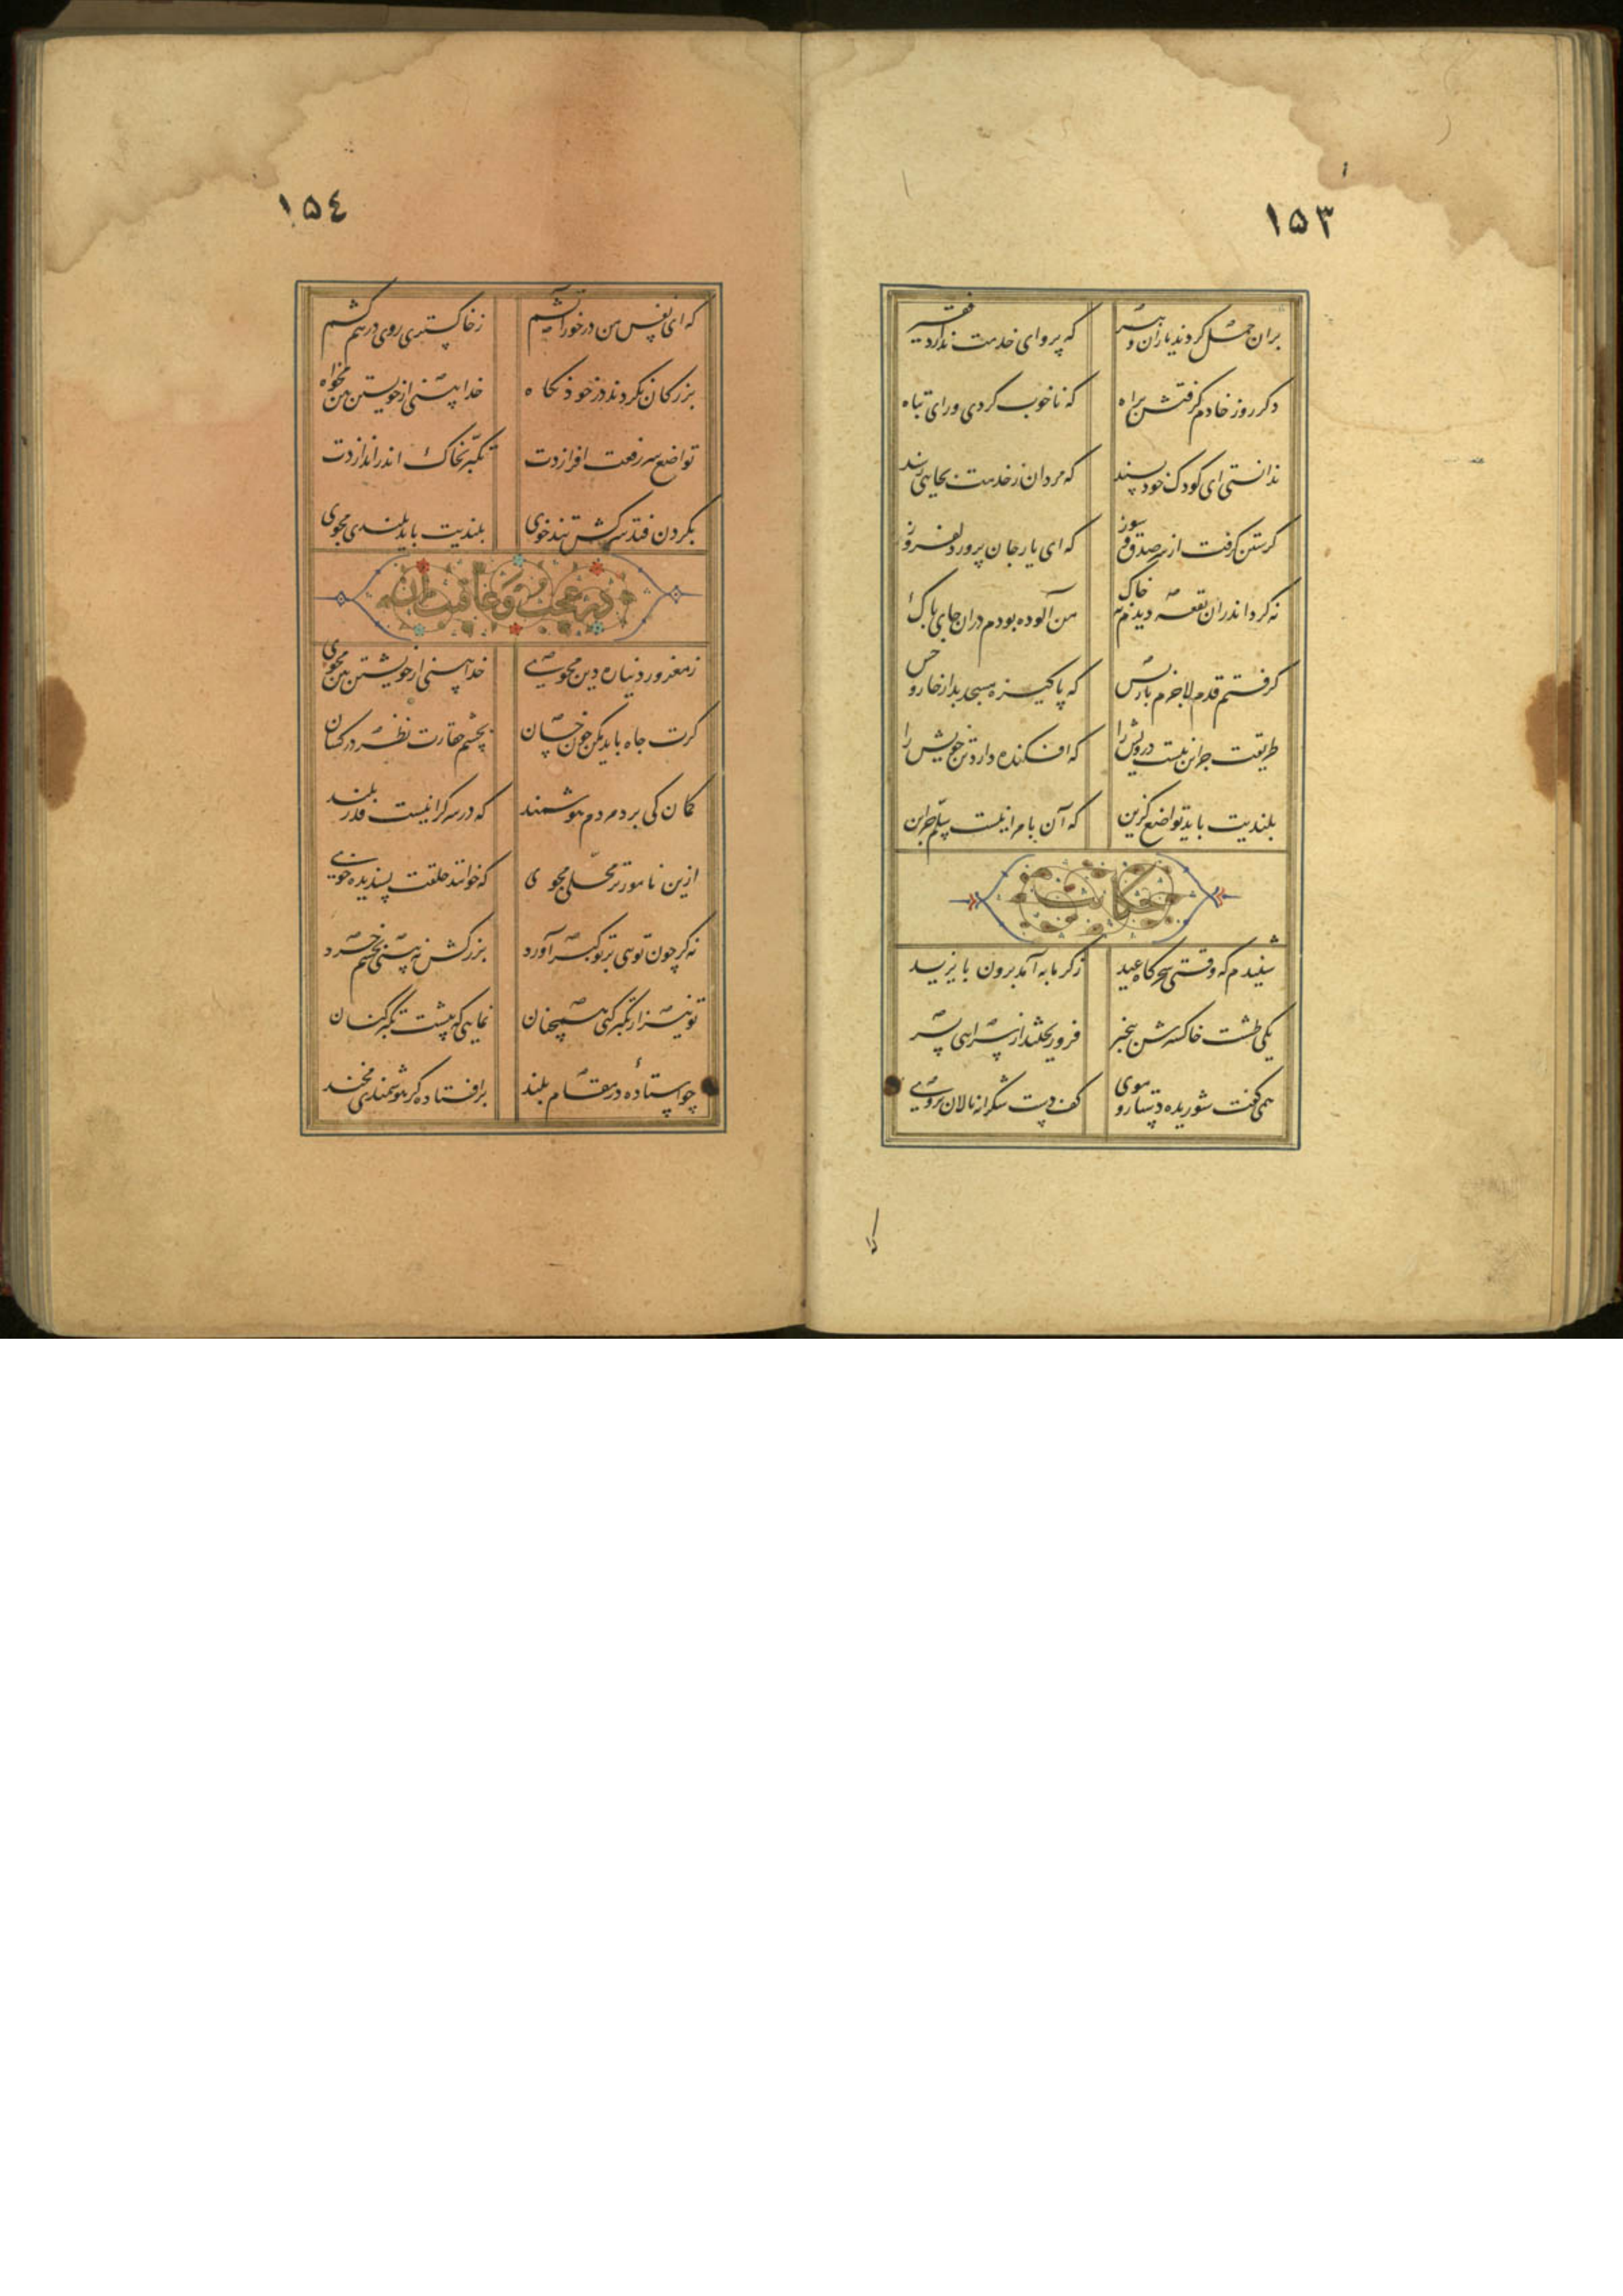 ۱۵۳
بران حمل کردند یاران و پیر که پروای خدمت ندارد فقیر
دکر روز خادم کرفتش براه که ناخوب کردی و رای تباه
ندانستی ای کودک خودپسند که مردان ز خدمت بجایی رسند
کرستن کرفت از سر صدق و سوز که ای یار جان پرور دلفروز
نه کرد اندران بقعه دیدم نه خاک من آلوده بودم دران جای پاک
کرفتم قدم لاجرم بازپس که پاکیزه مسجد بداز خار و خس
طریقت جز این نیست درویش را که افکنده دارد تن خویش را
بلندیت باید تواضع کزین که آن بام را نیست سلم جز این
حکایت
شنیدم که وقتی سحرکاه عید زکرمابه آمد برون بایزید
یکی طشت خاکسترش بیخبر فرو ریختند از سرایی بسر
همی کفت شوریده دستار و موی کف دست شکرانه مالان بروی
۱۵۴
که ای نفس من در خور آتشم ز خاکستری روی درهم کشم
بزرکان نکردند در خود نکاه خدا بینی از خویشتن بین مخواه
تواضع سر رفعت افرازدت تکبر بخاک اندر اندازدت
بکردن فتد سرکش تندخوی بلندیت باید بلندی مجوی
در عجب و عاقبت آن
ز مغرور دنیا ره دین مجوی خدا بینی از خویشتن بین مجوی
کرت جاه باید مکن چون خسان بچشم حقارت نظر در کسان
کمان کی برد مردم هوشمند که در سرکرانیست قدر بلند
ازین نامورتر محلی مجوی که خوانند خلقت پسندیده خوی
نه کر چون تویی بر تو کبر آورد بزرکش نه بینی بچشم خرد
تو نیز ار تکبر کنی همچنان نمایی که پیشت تکبر کنان
چو استاده در مقام بلند بر افتاده کر هوشمندی مخند